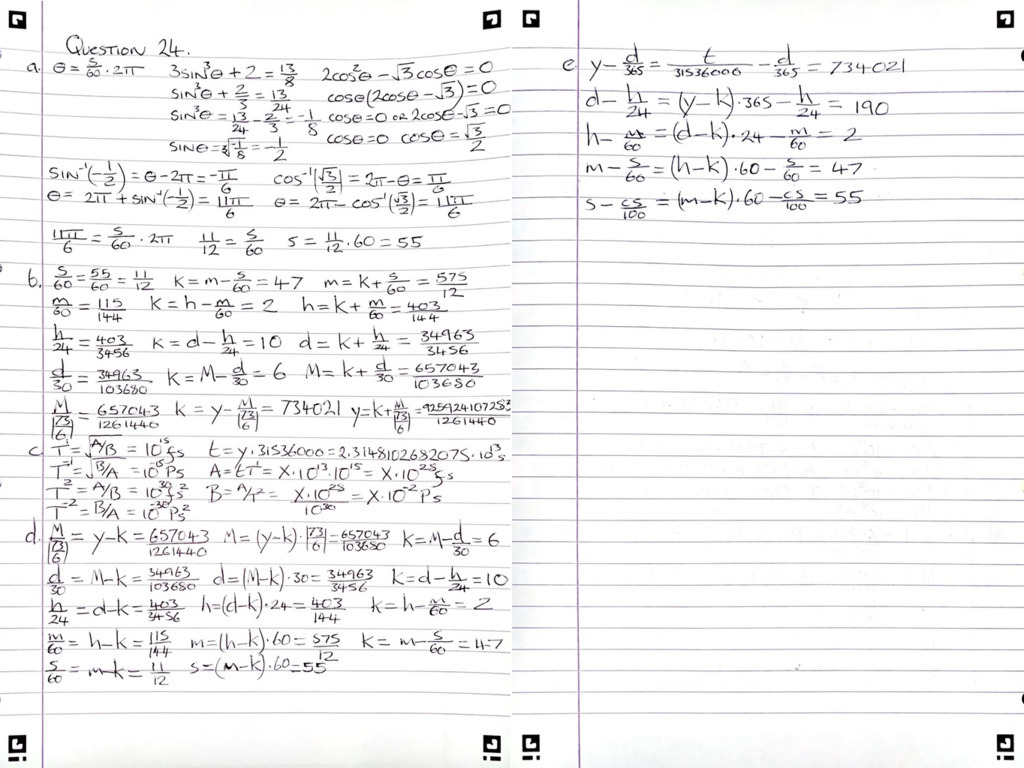 QUESTION 24.
a. θ = s/60 · 2π 3sin³θ + 2 = 13/8 2cos²θ - √3cosθ = 0
sin³θ + 2/3 = 13/24 cosθ(2cosθ - √3) = 0
sin³θ = 13/24 - 2/3 = -1/8 cosθ = 0 OR 2cosθ - √3 = 0
sinθ = ∛(-1/8) = -1/2 cosθ = 0 cosθ = √3/2
sin⁻¹(-1/2) = θ - 2π = -π/6 cos⁻¹(√3/2) = 2π - θ = π/6
θ = 2π + sin⁻¹(-1/2) = 11π/6 θ = 2π - cos⁻¹(√3/2) = 11π/6
11π/6 = s/60 · 2π 11/12 = s/60 s = 11/12 · 60 = 55
b. s/60 = 55/60 = 11/12 k = m - s/60 = 47 m = k + s/60 = 575/12
m/60 = 115/144 k = h - m/60 = 2 h = k + m/60 = 403/144
h/24 = 403/3456 k = d - h/24 = 10 d = k + h/24 = 34963/3456
d/30 = 34963/103680 k = M - d/30 = 6 M = k + d/30 = 657043/103680
M/|73/6| = 657043/1261440 k = y - M/|73/6| = 734021 y = k + M/|73/6| = 925924107283/1261440
c. T¹ = √A/B = 10¹⁵fs t = y · 31536000 = 2.3148102682075 · 10¹³s
T⁻¹ = √B/A = 10⁻¹⁵Ps A = tT¹ = X · 10¹³ · 10¹⁵ = X · 10²⁸fs
T² = A/B = 10³⁰fs² B = A/T² = X · 10²⁸/10³⁰ = X · 10⁻²Ps
T⁻² = B/A = 10⁻³⁰Ps²
d. M/|73/6| = y - k = 657043/1261440 M = (y - k) · |73/6| = 657043/103680 k = M - d/30 = 6
d/30 = M - k = 34963/103680 d = (M - k) · 30 = 34963/3456 k = d - h/24 = 10
h/24 = d - k = 403/3456 h = (d - k) · 24 = 403/144 k = h - m/60 = 2
m/60 = h - k = 115/144 m = (h - k) · 60 = 575/12 k = m - s/60 = 47
s/60 = m - k = 11/12 s = (m - k) · 60 = 55
e. y - d/365 = t/31536000 - d/365 = 734021
d - h/24 = (y - k) · 365 - h/24 = 190
h - m/60 = (d - k) · 24 - m/60 = 2
m - s/60 = (h - k) · 60 - s/60 = 47
s - cs/100 = (m - k) · 60 - cs/100 = 55